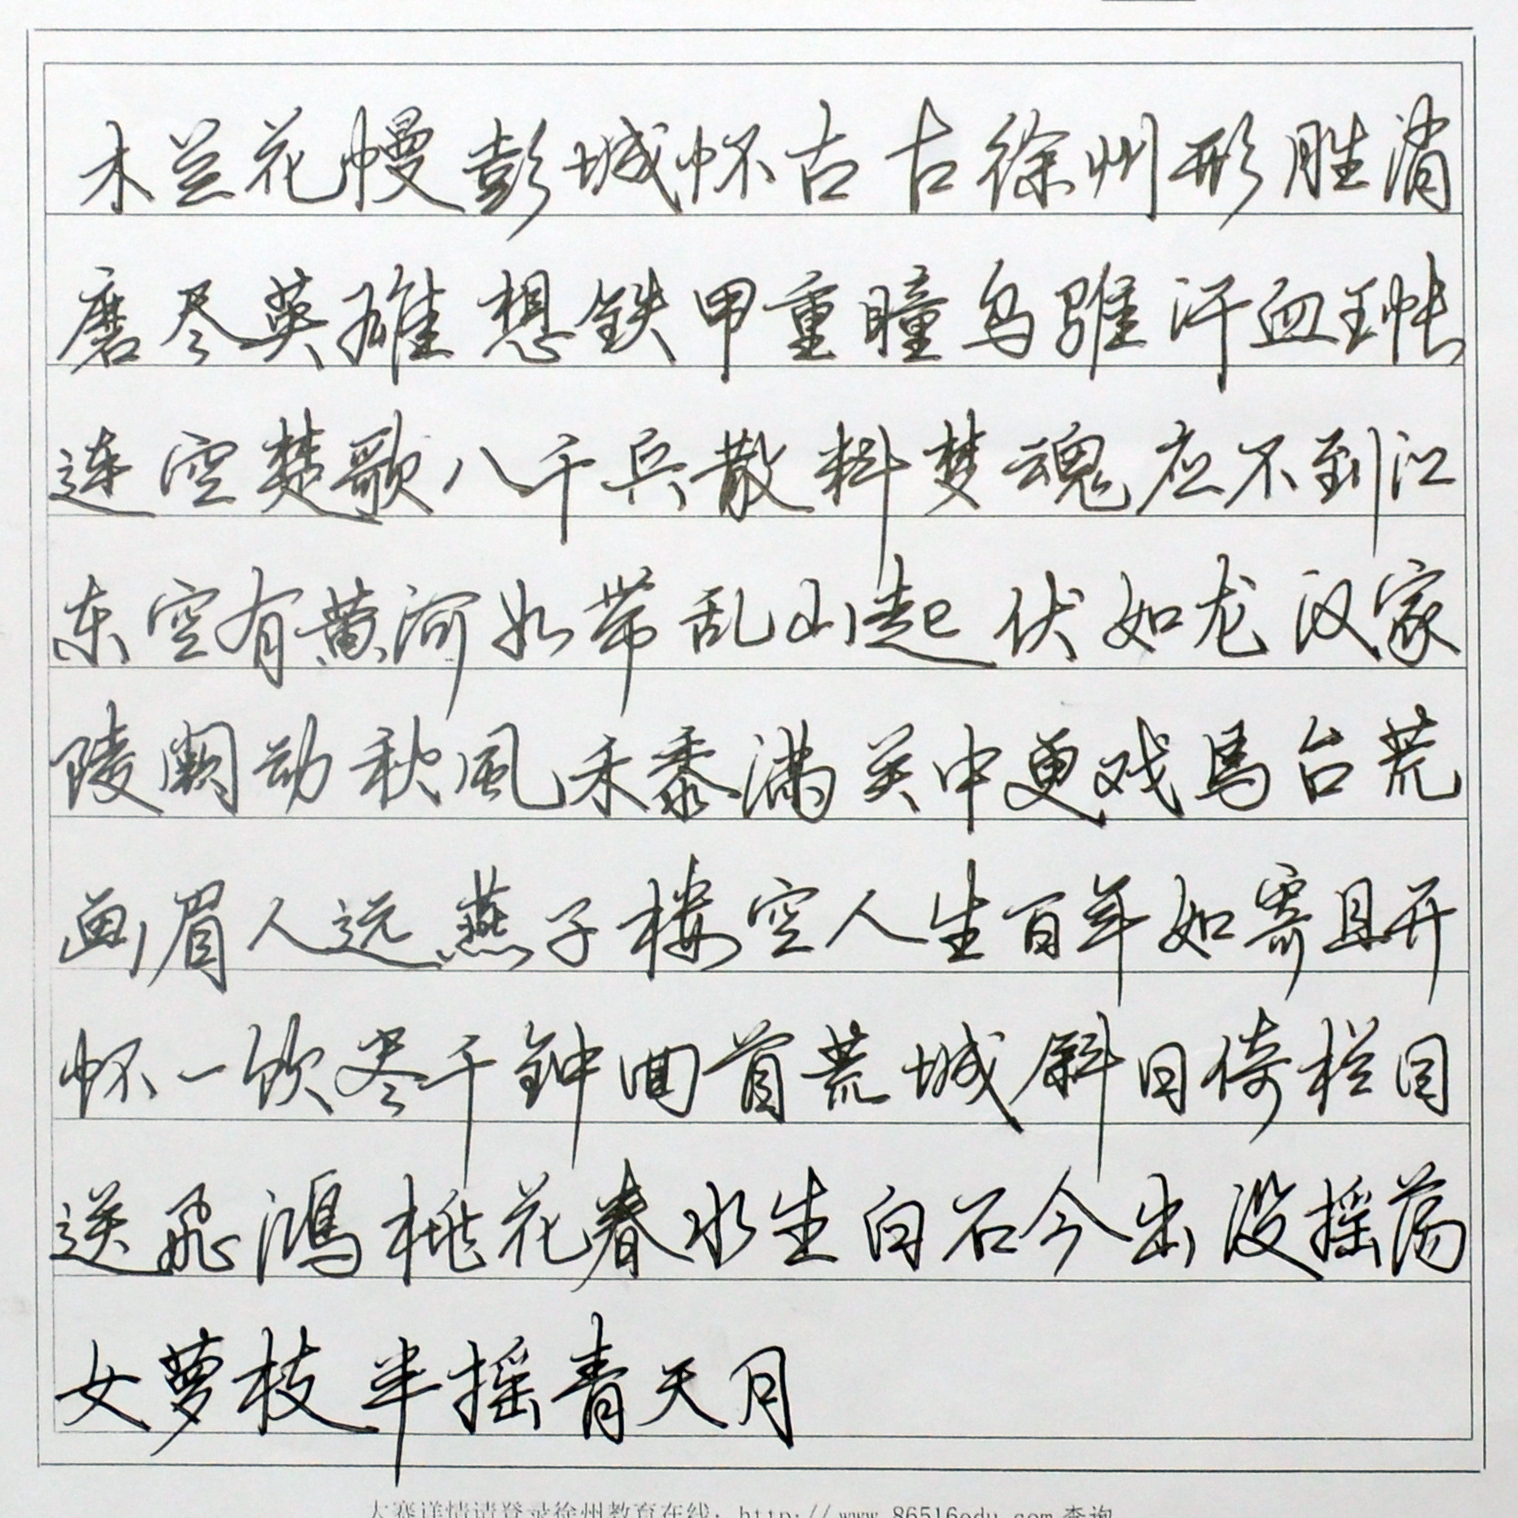 木兰花幔彭城怀古古徐州形胜消
磨尽英雄想铁甲重瞳乌骓汗血玉帐
连空楚歌八千兵散料梦魂应不到江
东空有黄河如带乱山起伏如龙汉家
陵阙动秋风禾黍满关中更戏马台荒
画眉人远燕子楼空人生百年如寄且开
怀一饮尽千钟回首荒城斜日倚栏目
送飞鸿桃花春水生白石今出没摇荡
女萝枝半摇青天月
大赛详情请登录徐州教育在线：http://www.86516edu.com查询